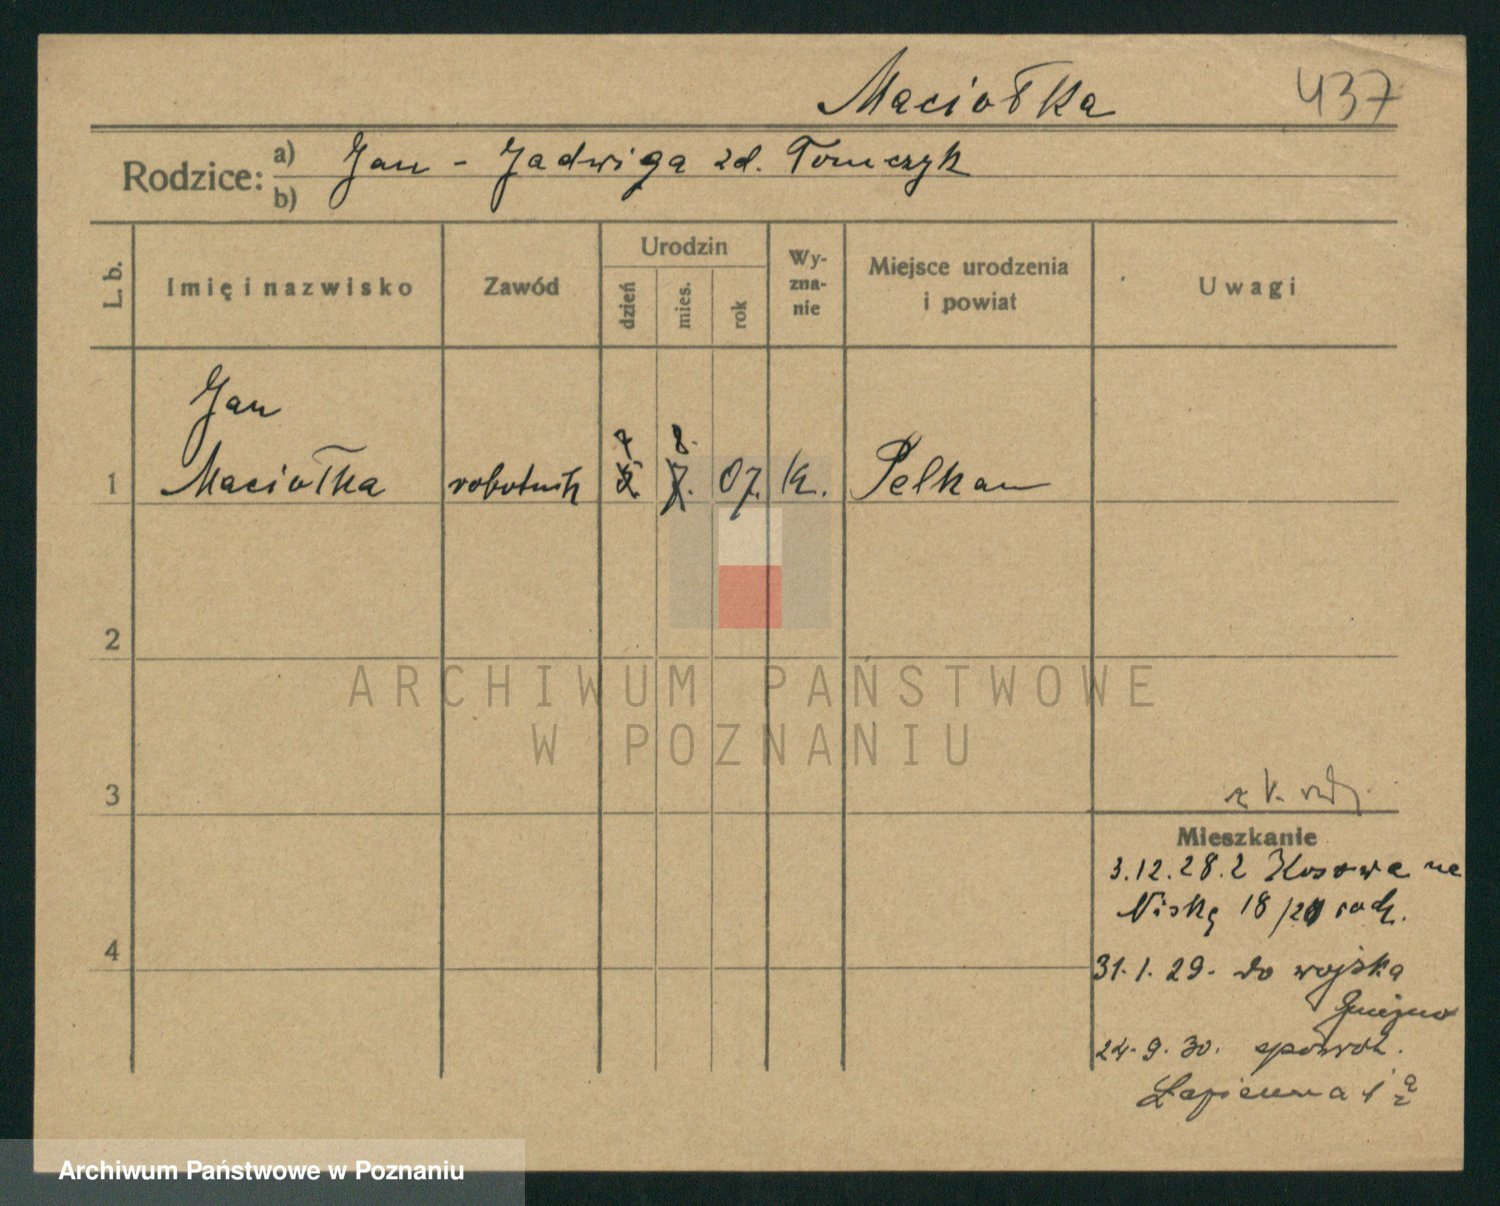 Maciołka 437
Rodzice: a) Jan - Jadwiga zd. Tomczyk
b)
L. b. Imię i nazwisko Zawód Urodzin dzień mies. rok Wy-zna-nie Miejsce urodzenia i powiat Uwagi
Jan
7 8.
1 Maciołka robotnik 07. k. Pelkau
2
ARCHIWUM PAŃSTWOWE
W POZNANIU
3
Mieszkanie
3.12.28. z Kosowa na
Niską 18/20 rodz.
4
31.1.29. do wojska
Gniezno
24.9.30. spowrot.
Łagiewna 1
Archiwum Państwowe w Poznaniu